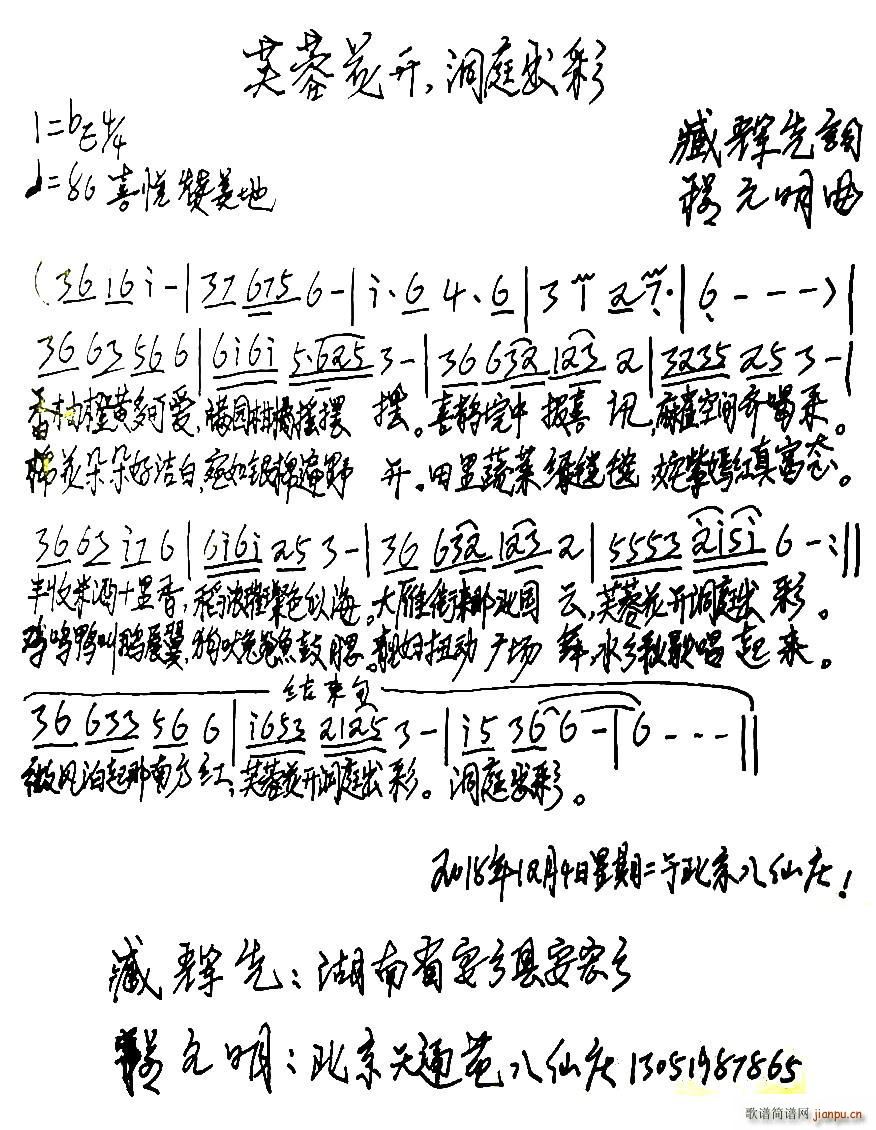 芙蓉花开,洞庭出彩
1=bE4/4
臧辉先词
♩=86 喜悦赞美地
程元明曲
(36 16 i - | 37 675 6 - | i· 6 4· 6 | 3 1 2 7· | 6 - - - ) |
36 63 56 6 | 6i6i 5·625 3 - | 36 632 123 2 | 3235 25 3 - |
香柚橙黄多可爱,橘园柑橘摇摆 摆。喜鹊 中 报喜 讯,麻雀空间齐唱来。
棉花朵朵好洁白,宛如银棉遍野 开。田里蔬菜绿 姹紫嫣红真富态。
36 63 i7 6 | 6i6i 25 3 - | 36 632 123 2 | 5553 2i5i 6 - :||
丰收米酒十里香,稻浓 色似海。大雁衔来那北国 云,芙蓉花开洞庭出 彩。
鸡鸣鸭叫鹅展翼,狗吠兔 鱼鼓腮。 妇扭动广场 舞,水乡秋歌唱起来。
结束句
36 633 56 6 | i653 2125 3 - | i5 36 6 - | 6 - - - ||
微风泊起那南方红,芙蓉花开洞庭出彩。洞庭出彩。
2018年12月4日星期二于北京八仙庄!
臧辉先:湖南省安乡县安宏乡
程元明:北京天通苑八仙庄13051987865
歌谱简谱网 jianpu.cn